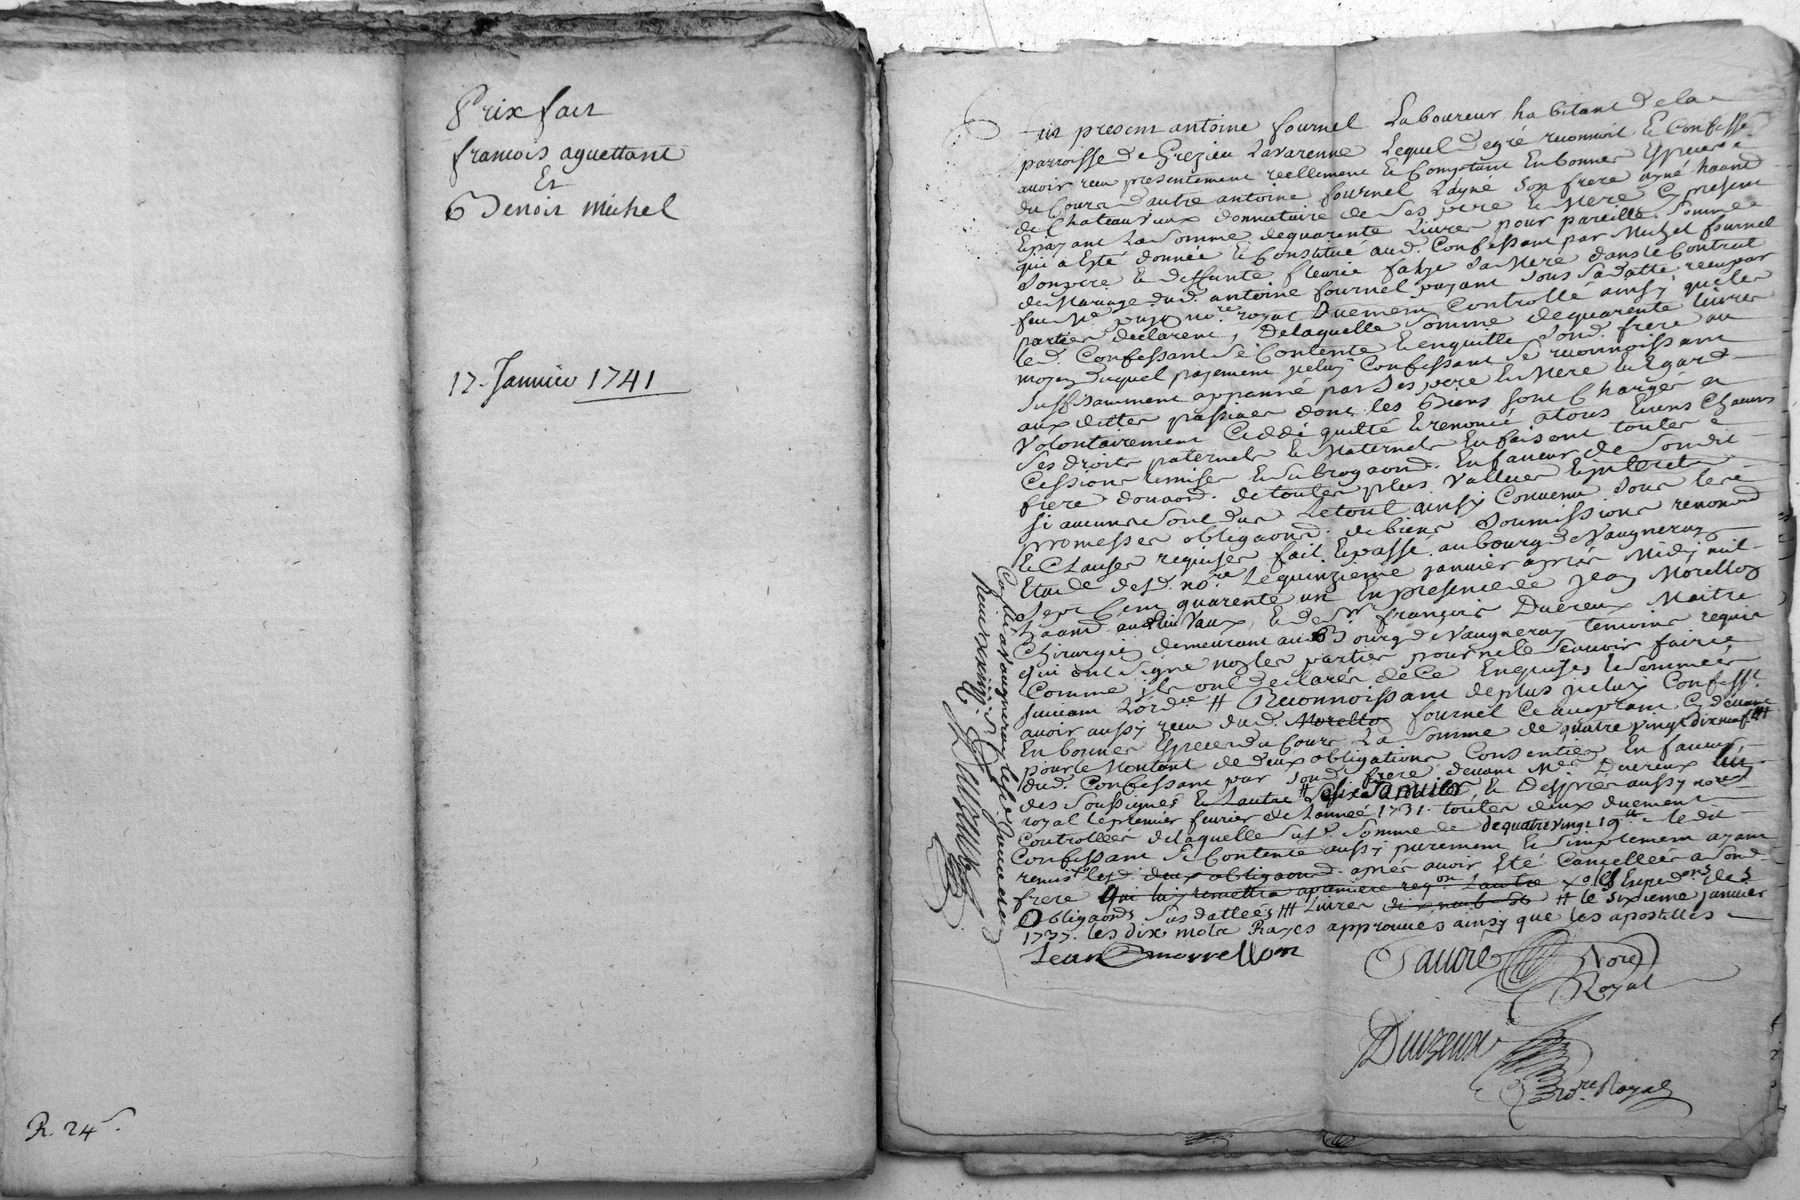 Prix fait
francois aguettant
Et
Benoit Michel
17. Janvier 1741
R. 24 s.
fut present antoine fournel Laboureur habitant dela
parroisse de Grezieu Lavarenne Lequel degré reconnoit Et Confesse
avoir receu presentement reellement Et Comptant En bonnes Especes
du Cours d'autre antoine fournel L'ayné son frere ayné habitant
de Chateauvieux donnataire de Ses pere Et Mere Cy present
Et payant La Somme dequarente Livres pour pareille Somme
qui a Esté donnée Et Constitué aud. Confessant par Michel fournel
Son pere Et deffunte fleurie fahy Sa Mere dans le Contrat
de Mariage dud. antoine fournel payant Sous Sa datte receu par
feu Me. nore. royal Duement Controllé ainsy que les
parties declarent, Delaquelle Somme dequarente Livres
led. Confessant Se Contente Et enquitte Sond. frere au
moyen duquel payement iceluy Confessant Se reconnoissant
Suffisamment appanné par Ses pere Et Mere Eu Egard
aux dettes passives dont les Biens Sont Chargés a
Volontairement Ceddé quitté Et renoncé atous Et uns Chacuns
Ses droits paternels Et Maternels En faisant toutes
Cessions remises Et Subrogaons. En faveur de Son dit
frere donaon. de toutes plus Vallues Et interets
Si aucuns Sont dus Le tout ainsy Convenu Sous les
promesses obligaons. de biens Soumissions renonçaons
Et Clauses requises fait Et passé au bourg de Vaugneray
Etude desd. nore. Le quinzieme janvier après Midy mil
Sept Cent quarente un En presence de Jean Morellon
habitant aud. Vaux, Et de Sr. françois Duereux Maitre
Chirurgien demeurant au Bourg de Vaugneray temoins requis
qui ont Signé non les parties pour ne le Scavoir faire
Comme ils ont declarés de ce Enquises Et Sommées
Suivant Lordce. # Reconnoissant deplus iceluy Confesst.
avoir aussy receu dud. Morellon fournel Ce acceptant Cy devant
En bonnes Especes du Cours La Somme de quatre vingt dix neuf #
pour le Montant de deux obligations Consenties En faveur
dud. Confessant par Sond. frere, devant Mes. Duereux lun
des Soussignés Et Lautre # Le six Janvier Et Despres aussy nore.
royal le premier fevrier de Lannée 1731. toutes deux duement
Controllées delaquelle susd. Somme de de quatre vingt 19 # ledit
Confessant Se Contente aussy purement Et Simplement ayant
remis lesd. deux obligaons. aprés avoir Eté Cancellées a Sond.
frere qui luy remettra a premiere reqon. Lautre les Expedons. des
Obligaons. Sus dattées # Livres dix neuf # le sixieme janvier
1737. les dix mots Rayés approuvés ainsy que les apostilles
Jean morrellon
Favre Nore
Royal
Duereux
nore. Royal
Conlé a Vaugneray le